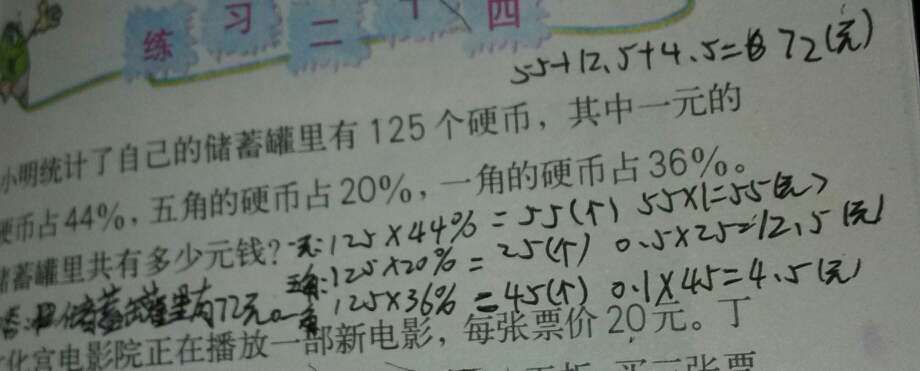 练习二十四
55+12.5+4.5=72(元)
小明统计了自己的储蓄罐里有125个硬币，其中一元的
硬币占44%，五角的硬币占20%，一角的硬币占36%。
储蓄罐里共有多少元钱？一元:125×44%=55(个) 55×1=55(元)
五角:125×20%=25(个) 0.5×25=12.5(元)
一角 125×36%=45(个) 0.1×45=4.5(元)
答: 储蓄罐里有72元。
文化宫电影院正在播放一部新电影，每张票价20元。丁
买二张票